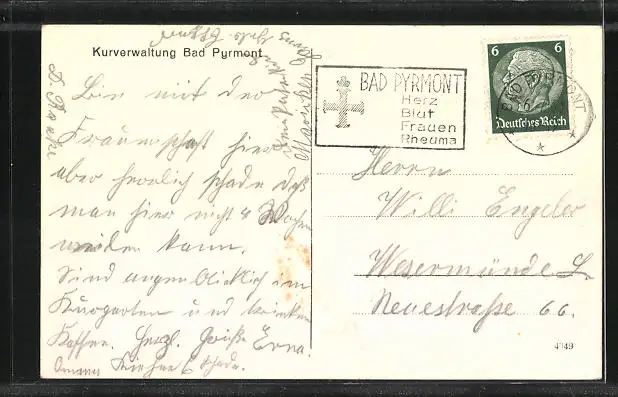 Kurverwaltung Bad Pyrmont
Bin mit der
Frauenschaft hier
aber herrlich schade daß
man hier nicht 4 Wochen
weiden kann.
Sind augenblicklich im
Kurgarten und trinken
Kaffee. Herzl. Grüße Erna.
BAD PYRMONT
Herz
Blut
Frauen
Rheuma
6 6
Deutsches Reich
BAD PYRMONT
Herrn
Willi Engeler
Wesermünde L.
Neuestraße 66.
4949